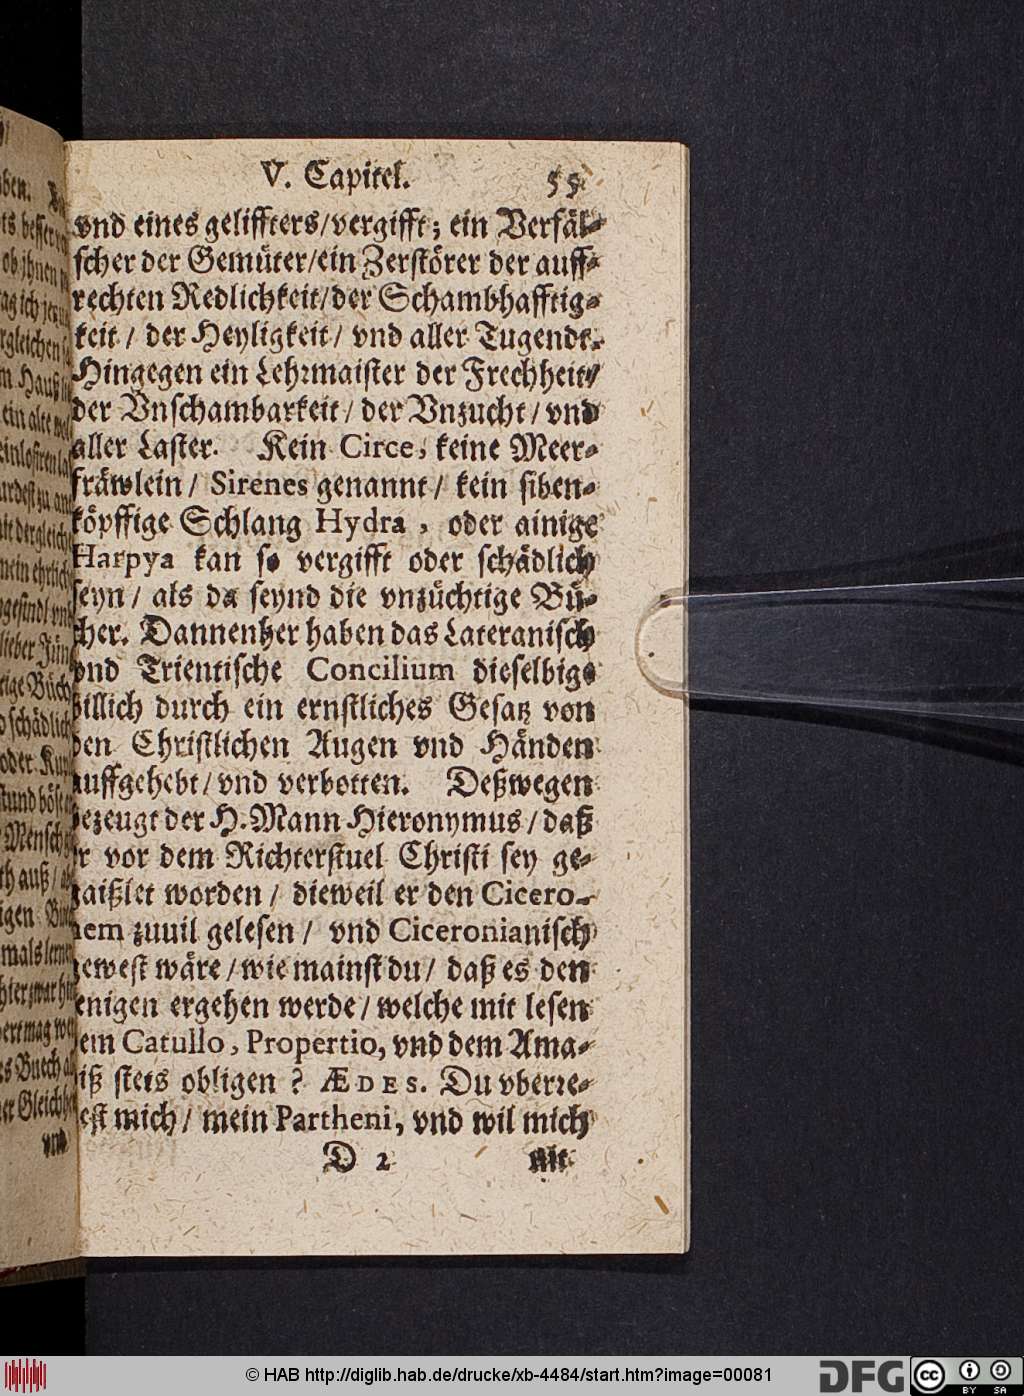 V. Capitel. 55
vnd eines geliffters/vergifft; ein Verfäl-
scher der Gemüter/ein Zerstörer der auff-
rechten Redlichkeit/der Schambhafftig-
keit / der Heyligkeit / vnd aller Tugendt.
Hingegen ein Lehrmaister der Frechheit/
der Vnschambarkeit / der Vnzucht / vnd
aller Laster. Kein Circe, keine Meer-
fräwlein / Sirenes genannt / kein siben-
köpffige Schlang Hydra, oder ainige
Harpya kan so vergifft oder schädlich
seyn / als da seynd die vnzüchtige Bü-
cher. Dannenher haben das Lateranisch
vnd Trientische Concilium dieselbige
billich durch ein ernstliches Gesatz von
den Christlichen Augen vnd Händen
auffgehebt / vnd verbotten. Deßwegen
bezeugt der H. Mann Hieronymus / daß
er vor dem Richterstuel Christi sey ge-
gaißlet worden / dieweil er den Cicero-
nem zuuil gelesen / vnd Ciceronianisch
gewest wäre / wie mainst du / daß es den
jenigen ergehen werde / welche mit lesen
dem Catullo, Propertio, vnd dem Ama-
diß stets obligen ? ÆDES. Du vberre-
dest mich / mein Partheni, vnd wil mich
D 2 nit
© HAB http://diglib.hab.de/drucke/xb-4484/start.htm?image=00081
DFG
cc BY SA